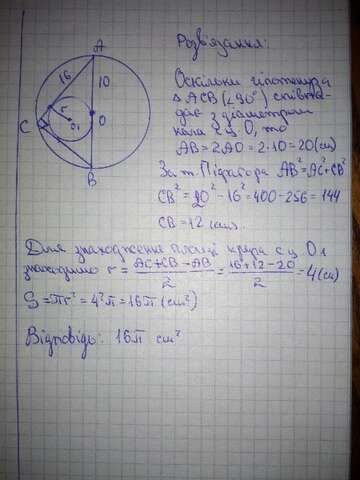 Розв'язання:
A
16
10
r
O₁
O
C
B
Оскільки гіпотенуза
△ ACB (∠90°) співпа-
дає з діаметром
кола з ц. O, то
AB = 2AO = 2·10 = 20 (см)
За т. Піфагора AB² = AC² + CB²
CB² = 20² - 16² = 400 - 256 = 144
CB = 12 (см).
Для знаходження площі круга с ц. O₁
знаходимо r = (AC+CB-AB)/2 = (16+12-20)/2 = 4 (см)
S = πr² = 4²π = 16π (см²)
Відповідь: 16π см²